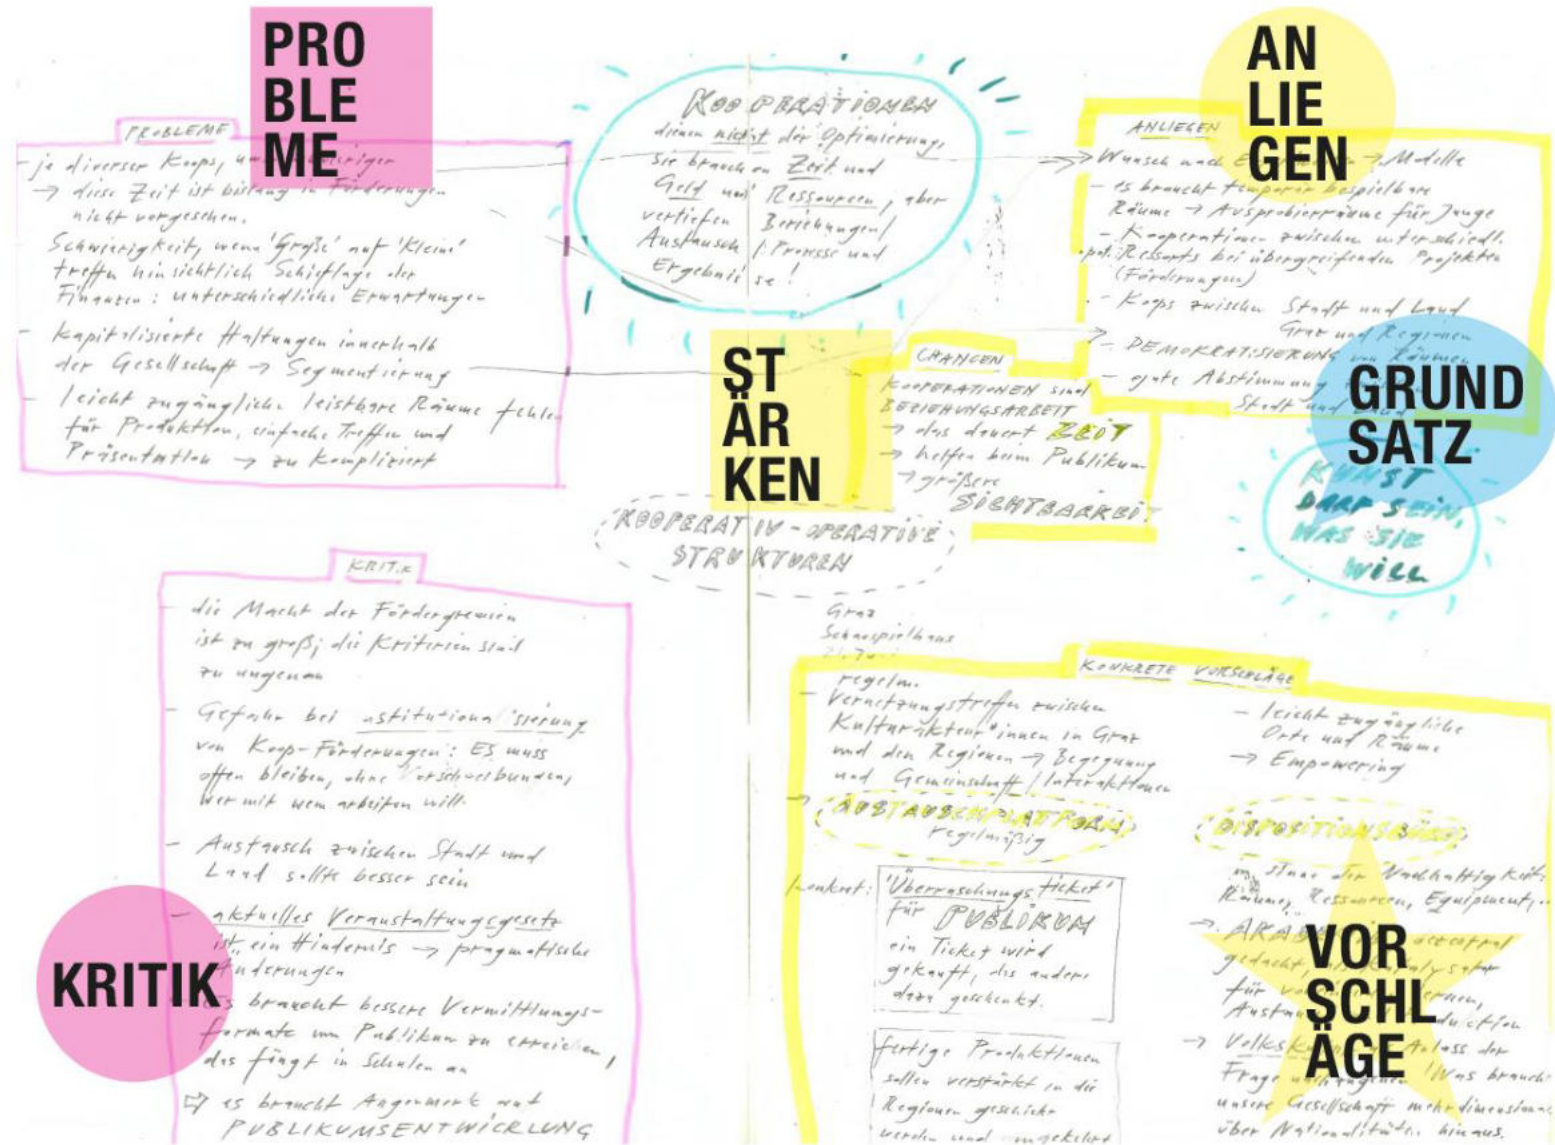 PRO
BLE
ME
PROBLEME
- je diverser Koops, umso
→ diese Zeit ist bislang in Förderungen
nicht vorgesehen.
Schwierigkeit, wenn 'Große' auf 'Kleine'
treffen hinsichtlich Schieflage der
Finanzen: unterschiedliche Erwartungen
- Kapitalisierte Haltungen innerhalb
der Gesellschaft → Segmentierung
- leicht zugängliche leistbare Räume fehlen
für Produktion, einfache Treffen und
Präsentation → zu kompliziert
KOOPERATIONEN
dienen nicht der Optimierung,
sie brauchen Zeit und
Geld und Ressourcen, aber
vertiefen Beziehungen/
Austausch /Prozesse und
Ergebnisse!
AN
LIE
GEN
ANLIEGEN
→ Wunsch nach → Modelle
- es braucht temporär bespielbare
Räume → Ausprobierräume für Junge
- Kooperationen zwischen unterschiedl.
pol. Ressorts bei übergreifenden Projekten
(Förderungen)
- Koops zwischen Stadt und Land
Graz und Regionen
- DEMOKRATISIERUNG von Räumen
- gute Abstimmung
Stadt und Land
ST
ÄR
KEN
CHANCEN
KOOPERATIONEN sind
BEZIEHUNGSARBEIT
→ das dauert ZEIT
→ helfen beim Publikum
→ größere
SICHTBARKEIT
GRUND
SATZ
KUNST
DARF SEIN,
WAS SIE
WILL
KOOPERATIV-OPERATIVE
STRUKTUREN
Graz
Schauspielhaus
KRITIK
KRITIK
- die Macht der Fördergremien
ist zu groß; die Kriterien sind
zu ungenau
- Gefahr bei Institutionalisierung
von Koop-Förderungen: Es muss
offen bleiben, ohne Vorschreibungen,
wer mit wem arbeiten will.
- Austausch zwischen Stadt und
Land sollte besser sein
- aktuelles Veranstaltungsgesetz
ist ein Hindernis → pragmatische
Änderungen
es braucht bessere Vermittlungs-
formate um Publikum zu erreichen,
das fängt in Schulen an
⇨ es braucht Augenmerk auf
PUBLIKUMSENTWICKLUNG
KONKRETE VORSCHLÄGE
regelm.
- Vernetzungstreffen zwischen
Kulturakteur*innen in Graz
und den Regionen → Begegnung
und Gemeinschaft / Interaktionen
→ AUSTAUSCHPLATTFORM
regelmäßig
konkret: 'Überraschungsticket'
für PUBLIKUM
ein Ticket wird
gekauft, das andere
dazu geschenkt.
fertige Produktionen
sollen verstärkt in die
Regionen geschickt
werden und umgekehrt
- leicht zugängliche
Orte und Räume
→ Empowering
DISPOSITIONSBÜRO
im Sinne der Nachhaltigkeit:
Räume, Ressourcen, Equipment,..
→ dezentral
gedacht, als Katalysator
für
→ als Anlass der
Frage nachzugehen 'Was braucht
unsere Gesellschaft mehrdimensional
über Nationalitäten hinaus.
VOR
SCHL
ÄGE